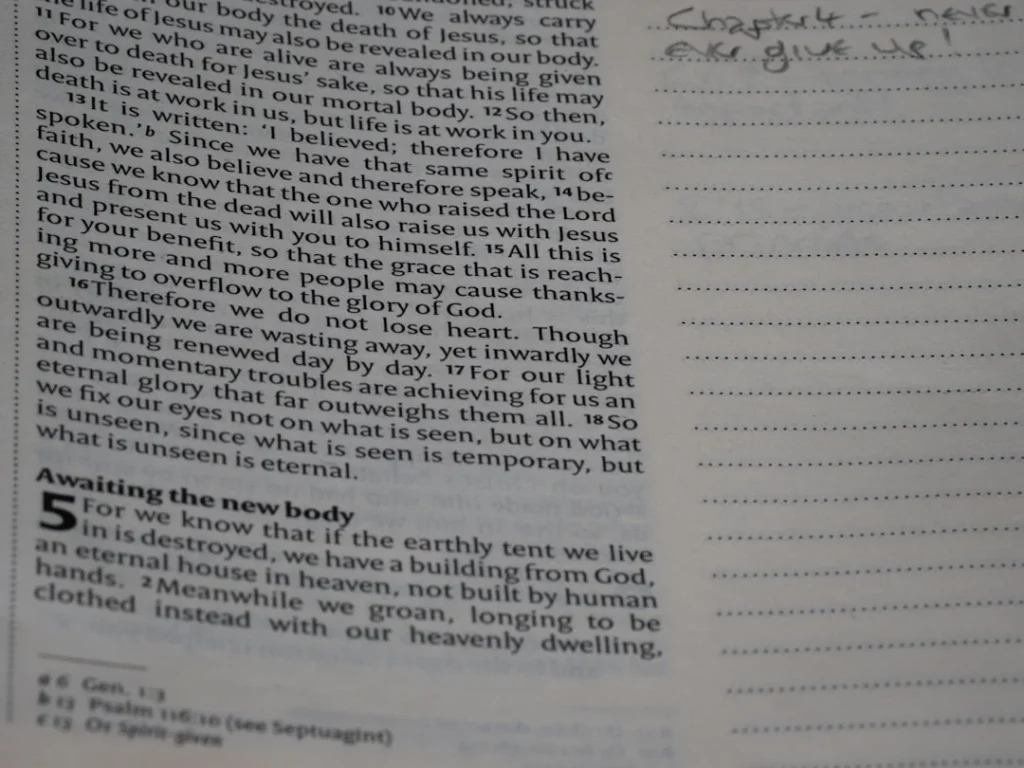 our body the death of Jesus, so that
destroyed. 10 We always carry
the life of Jesus may also be revealed in our body.
11 For we who are alive are always being given
over to death for Jesus' sake, so that his life may
also be revealed in our mortal body. 12 So then,
death is at work in us, but life is at work in you.
13 It is written: 'I believed; therefore I have
spoken.'b Since we have that same spirit ofc
faith, we also believe and therefore speak, 14 be-
cause we know that the one who raised the Lord
Jesus from the dead will also raise us with Jesus
and present us with you to himself. 15 All this is
for your benefit, so that the grace that is reach-
ing more and more people may cause thanks-
giving to overflow to the glory of God.
16 Therefore we do not lose heart. Though
outwardly we are wasting away, yet inwardly we
are being renewed day by day. 17 For our light
and momentary troubles are achieving for us an
eternal glory that far outweighs them all. 18 So
we fix our eyes not on what is seen, but on what
is unseen, since what is seen is temporary, but
what is unseen is eternal.
Awaiting the new body
5 For we know that if the earthly tent we live
in is destroyed, we have a building from God,
an eternal house in heaven, not built by human
hands. 2 Meanwhile we groan, longing to be
clothed instead with our heavenly dwelling,
a 6 Gen. 1:3
b 13 Psalm 116:10 (see Septuagint)
c 13 Or Spirit-given
Chapter 4 - never
ever give up!